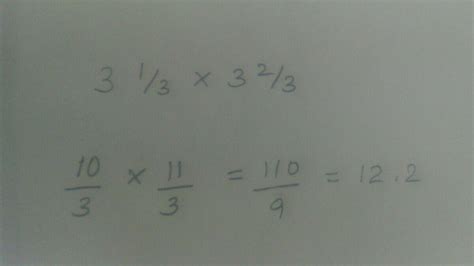 3 1/3 × 3 2/3
10/3 × 11/3 = 110/9 = 12.2